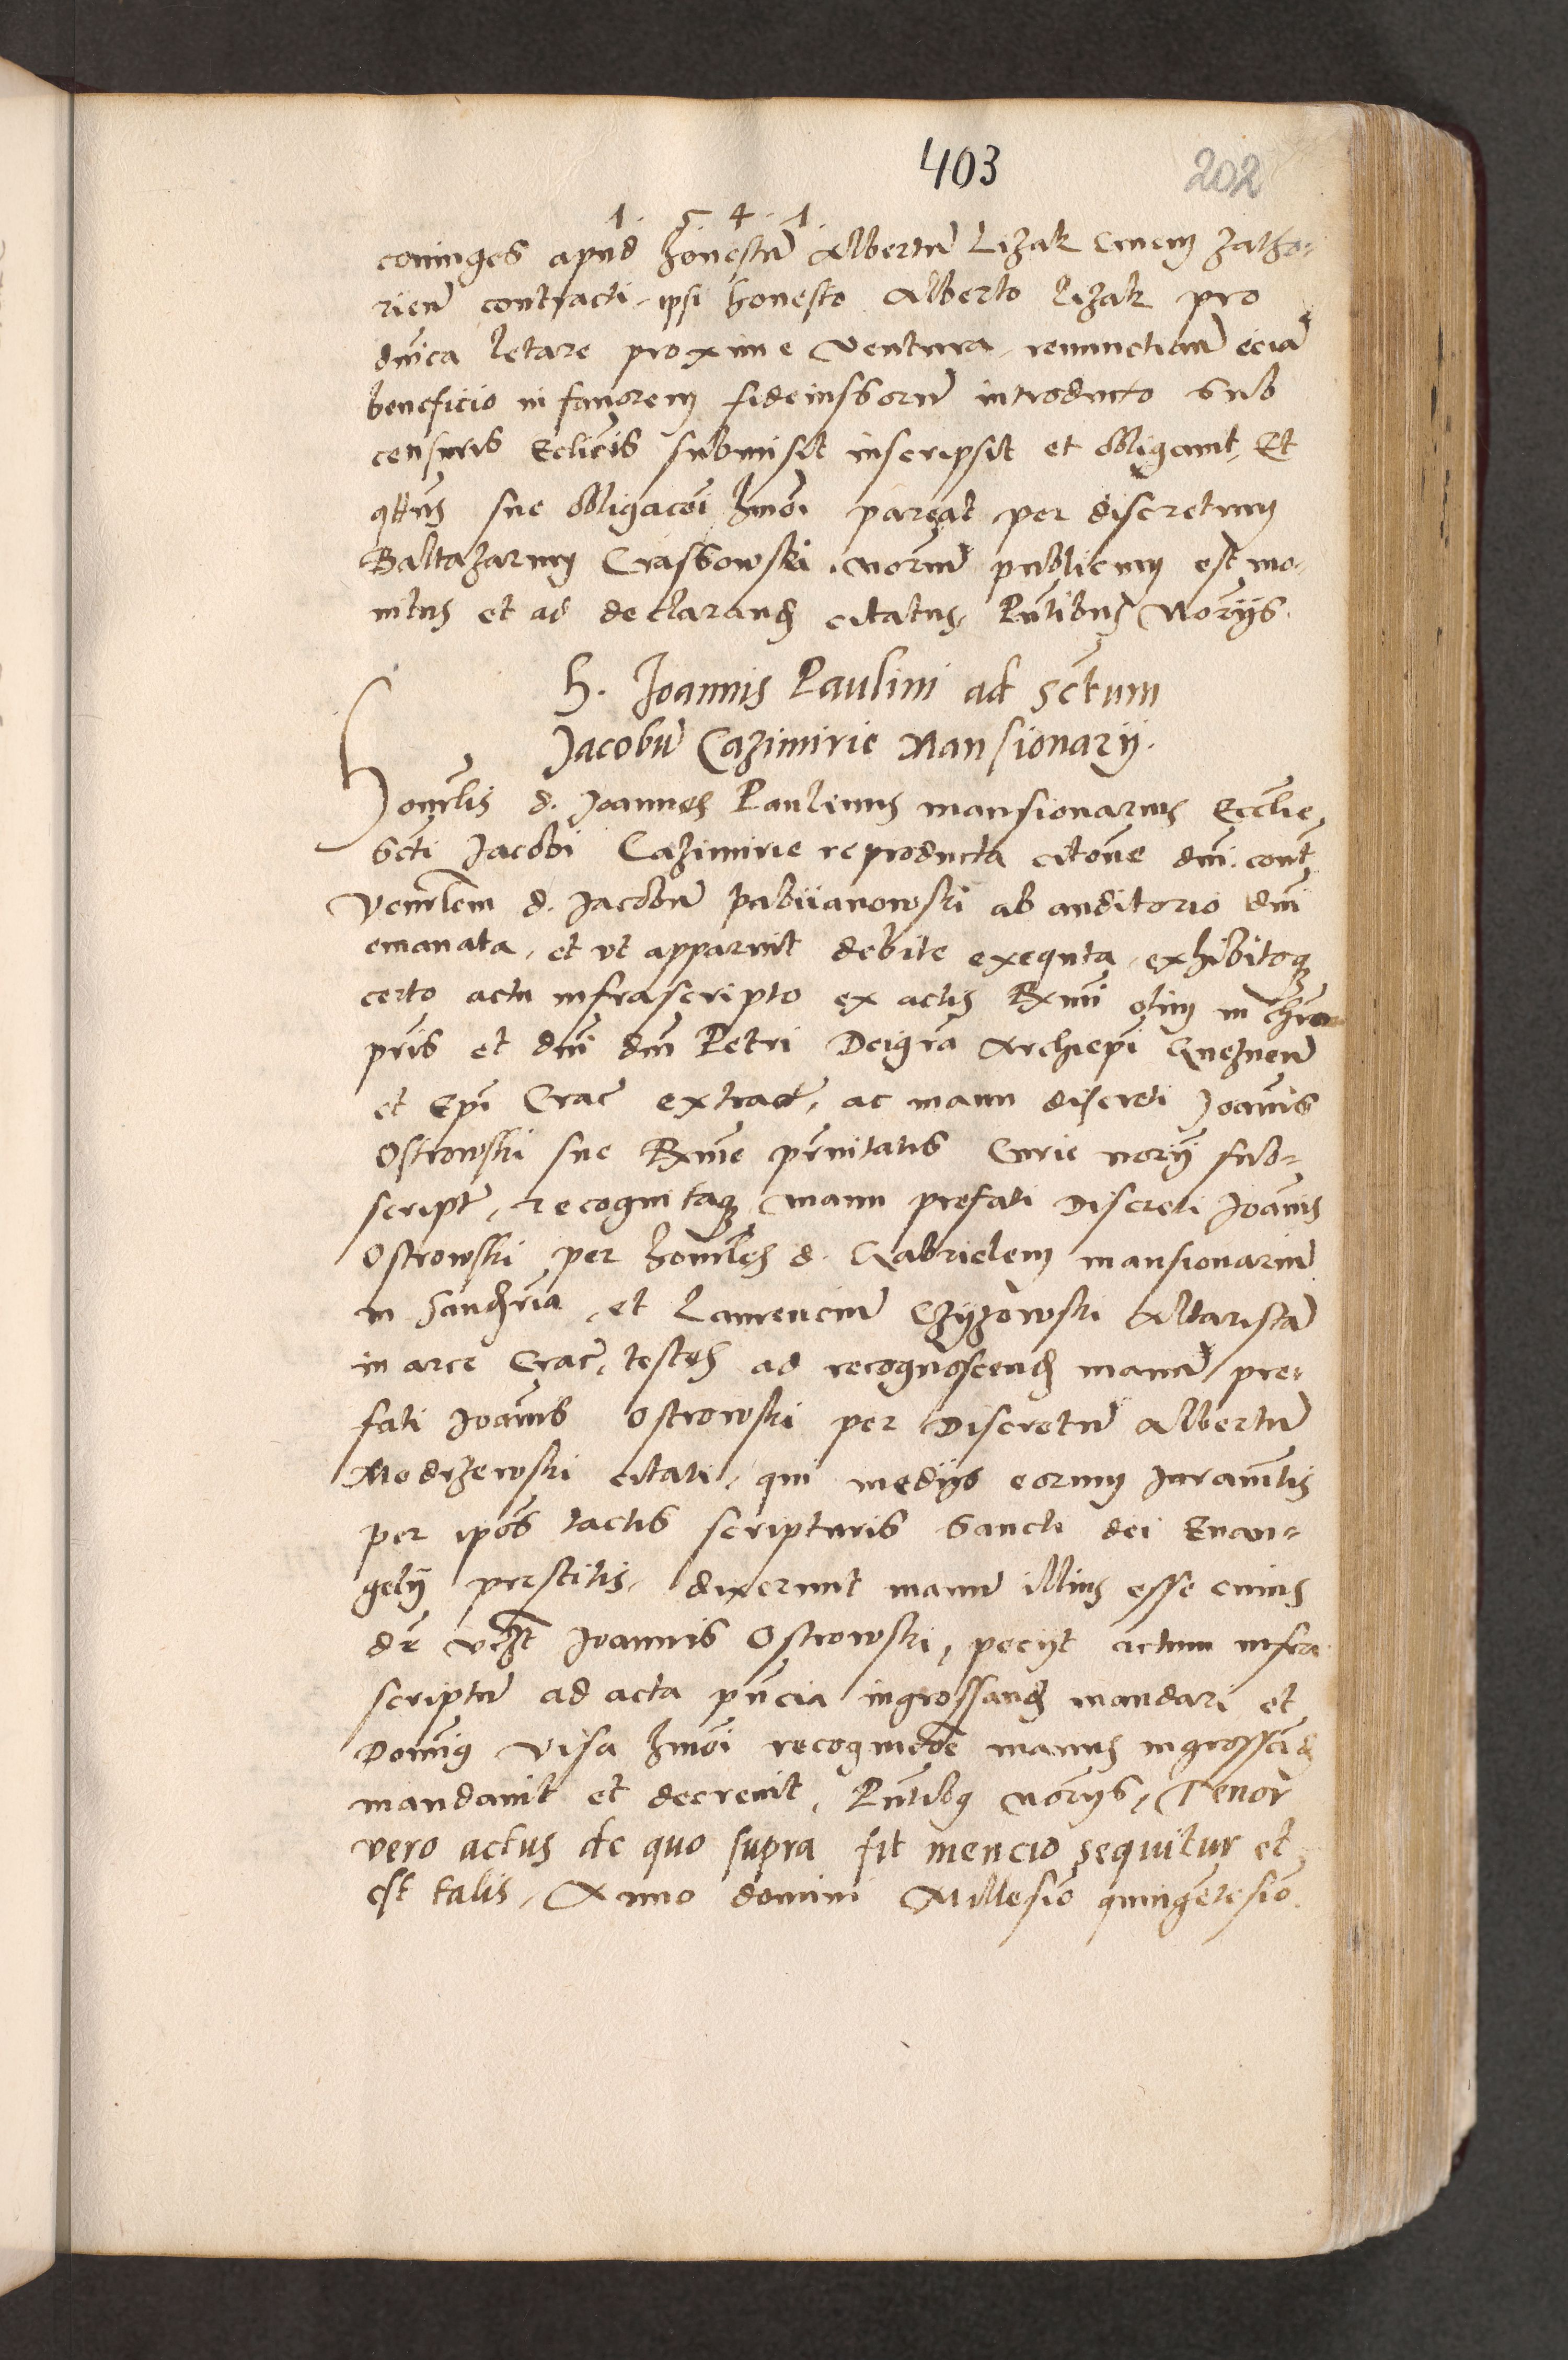 403
202
1. 5 4. 1.
coniuges apud honestu Albertu Lizak Ciuem Zatho-
rien contracti, ipsi honesto Alberto Lizak pro
dnica letare proxime ventura, renunctian eciam
beneficio in fauorem fideiussoru introducto sub
censuris Eclicis submisit inscripsit et obligauit, Et
qtus sue obligacoi hmoi pareat per discretum
Baltazarum Crassowski, noriu publicum est mo-
nitus et ad declarand citatus, Pntibus Norijs.
H. Joannis Paulini ad sctum
Jacobu Cazimirie Mansionarij.
Honrlis d. Joannes Paulinus mansionarius Ecclie
Scti Jacobi Cazimirie reproducta citone dni. cont
Venrlem d. Jacobu Pabiianowski ab auditorio dni
emanata, et vt apparuit debite exequta, exhibitoq
certo actu infrascripto ex actis Rxmi olim in chro
pris et dni dni Petri Dei gra Archiepi Gneznen
et Epi Crac extract, ac manu discreti Joannis
Ostrowski sue Rxme prnitatis Curie norij sub-
script, recognitaq manu prefati Discreti Joannis
Ostrowski per honrles d. Gabrielem mansionariu
in Sandriria, et Laurenciu Czyzowski Altarista
in arce Crac, testes ad recognoscend manu pre-
fati Joannis Ostrowski per Discretu Albertu
Modrzewski citati, qui medijs eorum Juramtis
per ipos tactis scripturis Sancti dei Euan-
gelij prestitis, dixerunt manu illius esse cuius
dr vzt Joannis Ostrowski, pecijt actum infra
scriptu ad acta pncia ingrossand mandari et
Domius visa hmoi recognicoe manus ingrossand
mandauit et decreuit, Pntibq norijs, Tenor
vero actus de quo supra fit mencio sequitur et
est talis, Anno domini Millesio quingetesio.